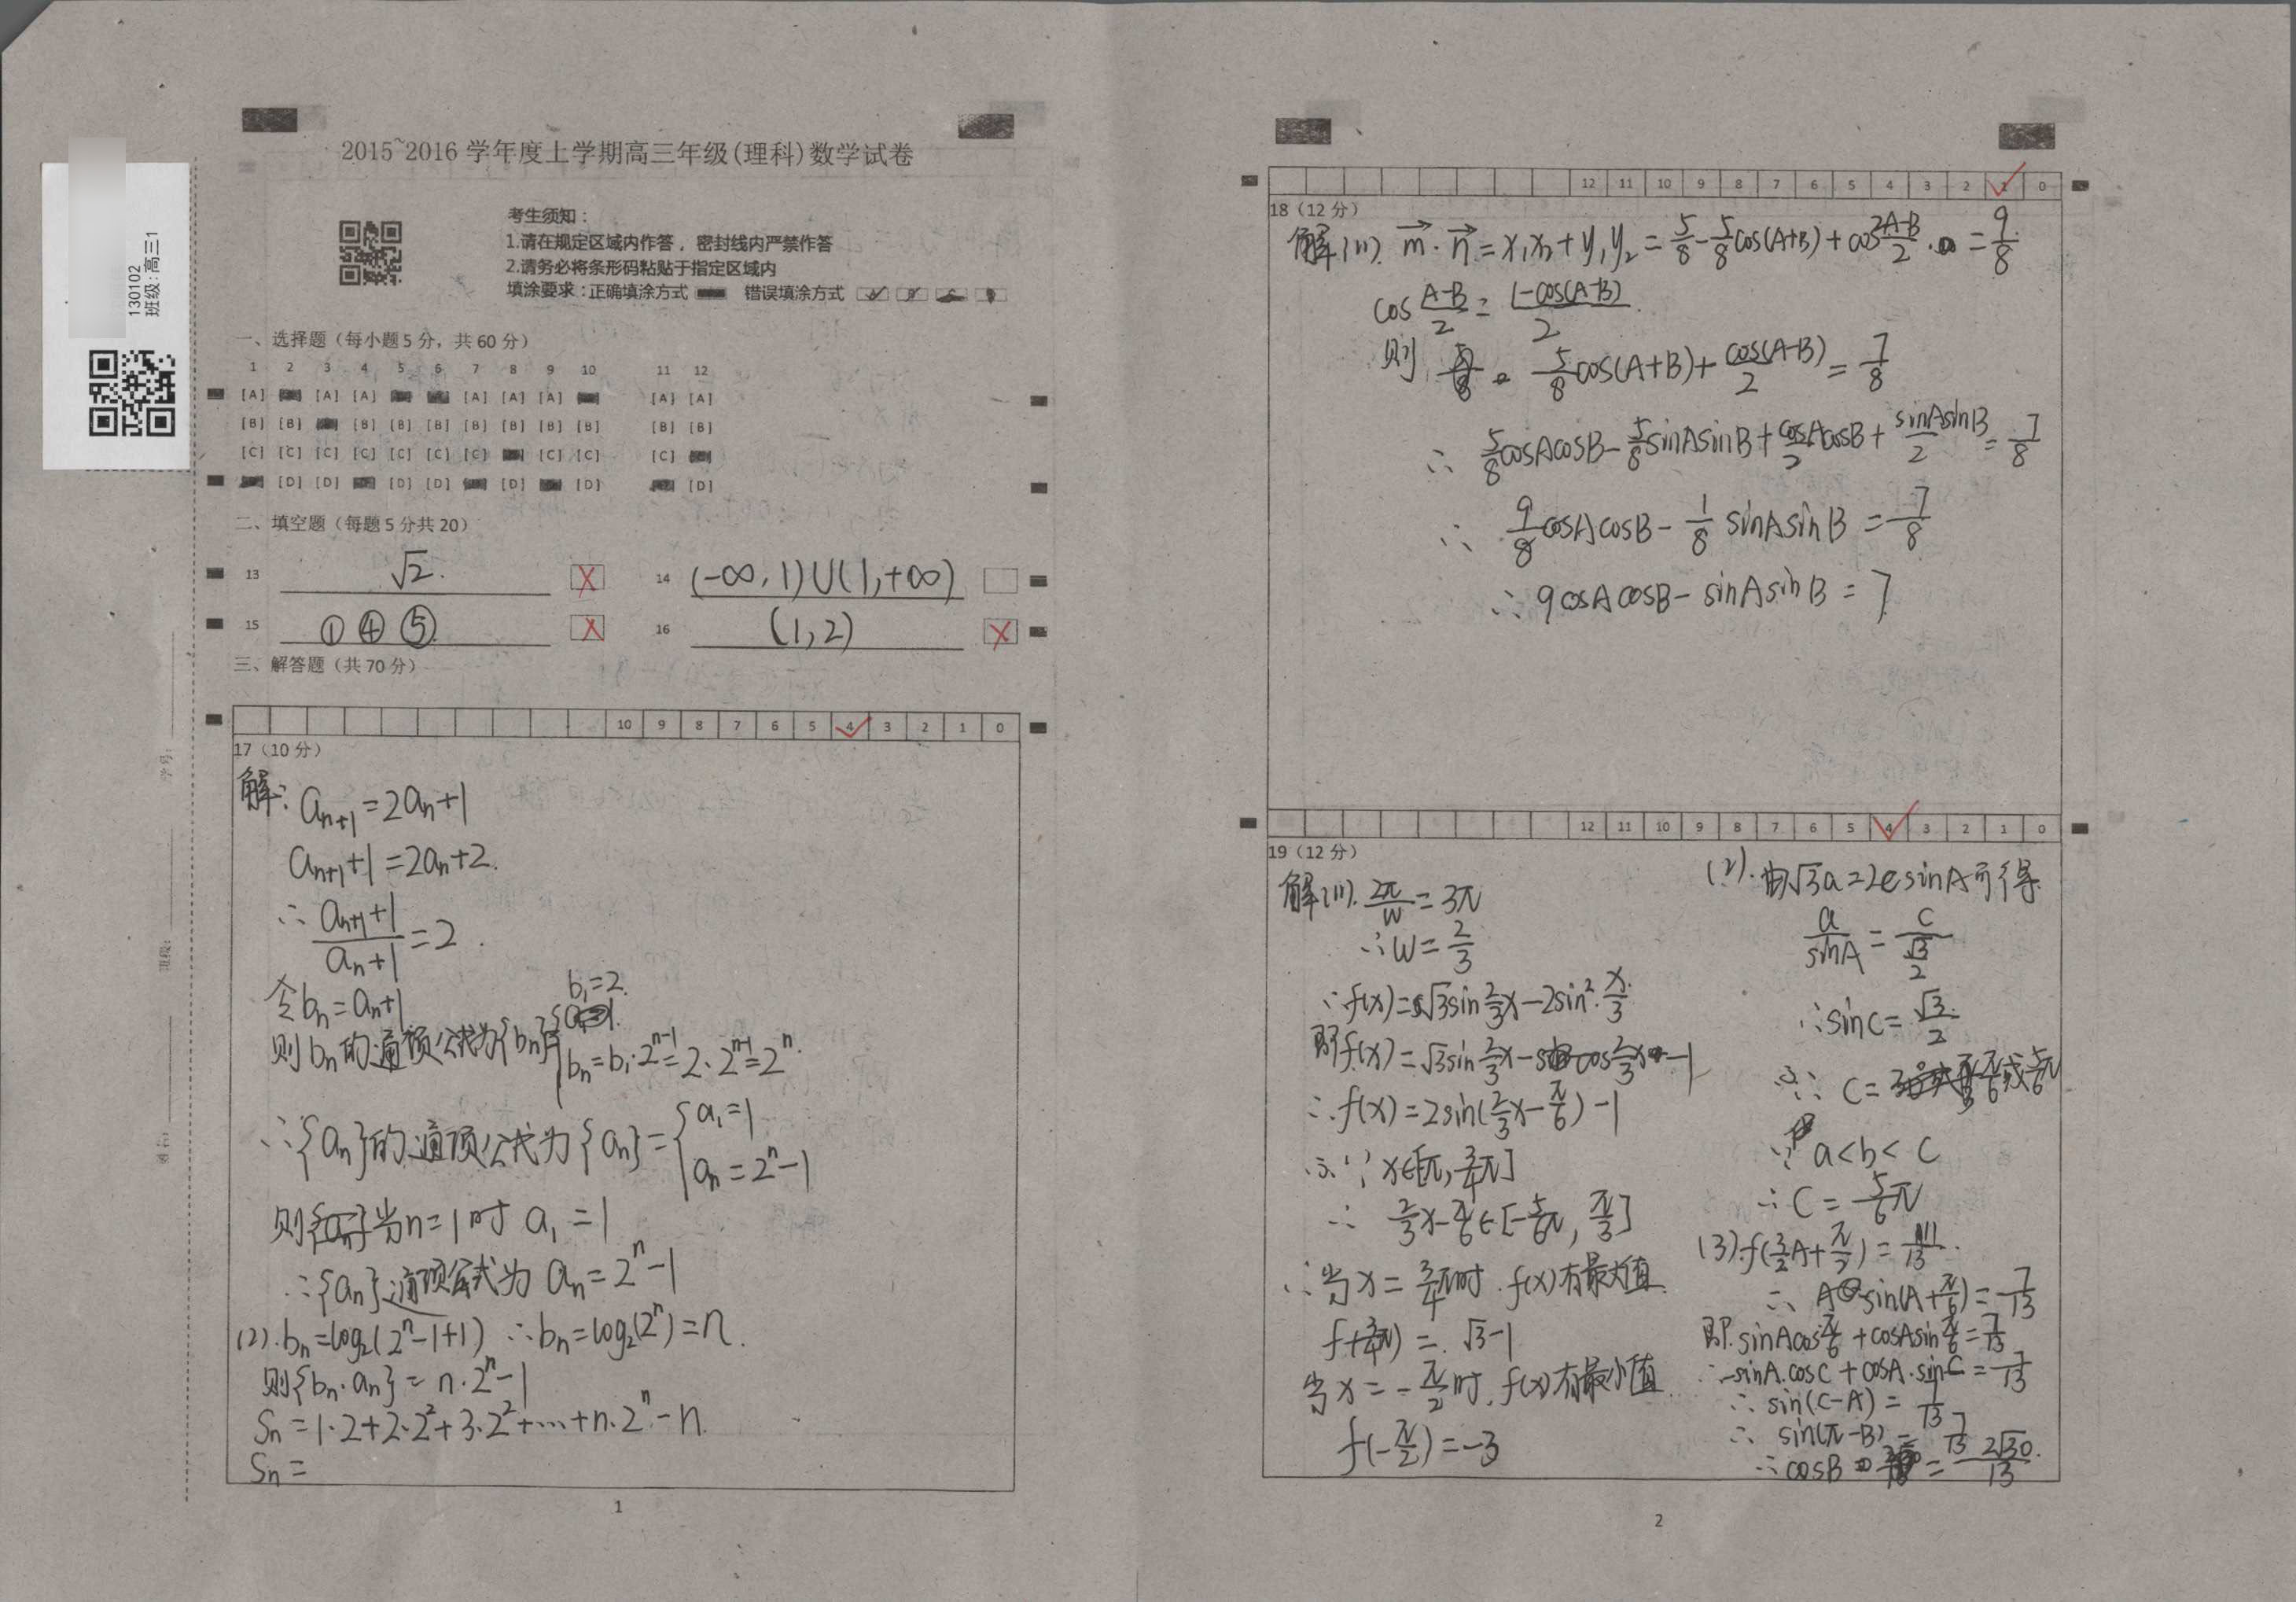 2015~2016 学年度上学期高三年级(理科)数学试卷
130102
班级:高三1
考生须知:
1.请在规定区域内作答，密封线内严禁作答
2.请务必将条形码粘贴于指定区域内
填涂要求:正确填涂方式 错误填涂方式
一、选择题（每小题5分，共60分）
1 2 3 4 5 6 7 8 9 10 11 12
[A] [A] [A] [A] [A] [A] [A] [A]
[B] [B] [B] [B] [B] [B] [B] [B] [B] [B] [B]
[C] [C] [C] [C] [C] [C] [C] [C] [C] [C]
[D] [D] [D] [D] [D] [D] [D]
二、填空题（每题5分共20）
13 √2. 14 (-∞,1)∪(1,+∞)
15 ①④⑤ 16 (1,2)
三、解答题（共70分）
10 9 8 7 6 5 4 3 2 1 0
17（10分）
解: aₙ₊₁=2aₙ+1
aₙ₊₁+1=2aₙ+2.
∴ (aₙ₊₁+1)/(aₙ+1)=2.
令bₙ=aₙ+1
b₁=2.
则bₙ的通项公式为{bₙ}
bₙ=b₁·2ⁿ⁻¹=2·2ⁿ⁻¹=2ⁿ.
∴{aₙ}的通项公式为{aₙ}={a₁=1
aₙ=2ⁿ-1
则 当n=1时 a₁=1
∴{aₙ}通项公式为 aₙ=2ⁿ-1
(2).bₙ=log₂(2ⁿ-1+1) ∴bₙ=log₂(2ⁿ)=n.
则{bₙ·aₙ}=n·2ⁿ-1
Sₙ=1·2+2·2²+3·2²+…+n·2ⁿ-n.
Sₙ=
1
12 11 10 9 8 7 6 5 4 3 2 1 0
18（12分）
解(1). m⃗·n⃗=x₁x₂+y₁y₂=5/8-5/8cos(A+B)+cos²(A-B)/2=9/8
cos(A-B)/2=(1-cos(A-B))/2.
则 5/8cos(A+B)+cos(A-B)/2=7/8
∴ 5/8cosAcosB-5/8sinAsinB+cosAcosB/2+sinAsinB/2=7/8
∴ 9/8cosAcosB-1/8sinAsinB=7/8
∴ 9cosAcosB-sinAsinB=7
12 11 10 9 8 7 6 5 4 3 2 1 0
19（12分）
解(1). 2π/w=3π
∴w=2/3
∴f(x)=√3sin2/3x-2sin²·x/3
即f(x)=√3sin2/3x-cos2/3x-1
∴f(x)=2sin(2/3x-π/6)-1
∵x∈[π,3/4π]
∴ 2/3x-π/6∈[-5/6π,π/3]
∴当x=3/4π时.f(x)有最大值
f(3/4π)=√3-1
当x=-π/2时,f(x)有最小值
f(-π/2)=-3
(2).由√3a=2csinA可得
a/sinA=c/(√3/2)
∴sinC=√3/2
∴C=π/6或5/6π
∵a<b<c
∴C=5/6π
(3).f(3/2A+π/2)=11/13.
∴ sin(A+π/6)=7/13
即sinAcosπ/6+cosAsinπ/6=7/13
∴-sinA.cosC+cosA.sinC=7/13
∴sin(C-A)=7/13
∴sin(π-B)=7/13
∴cosB=2√30/13.
2